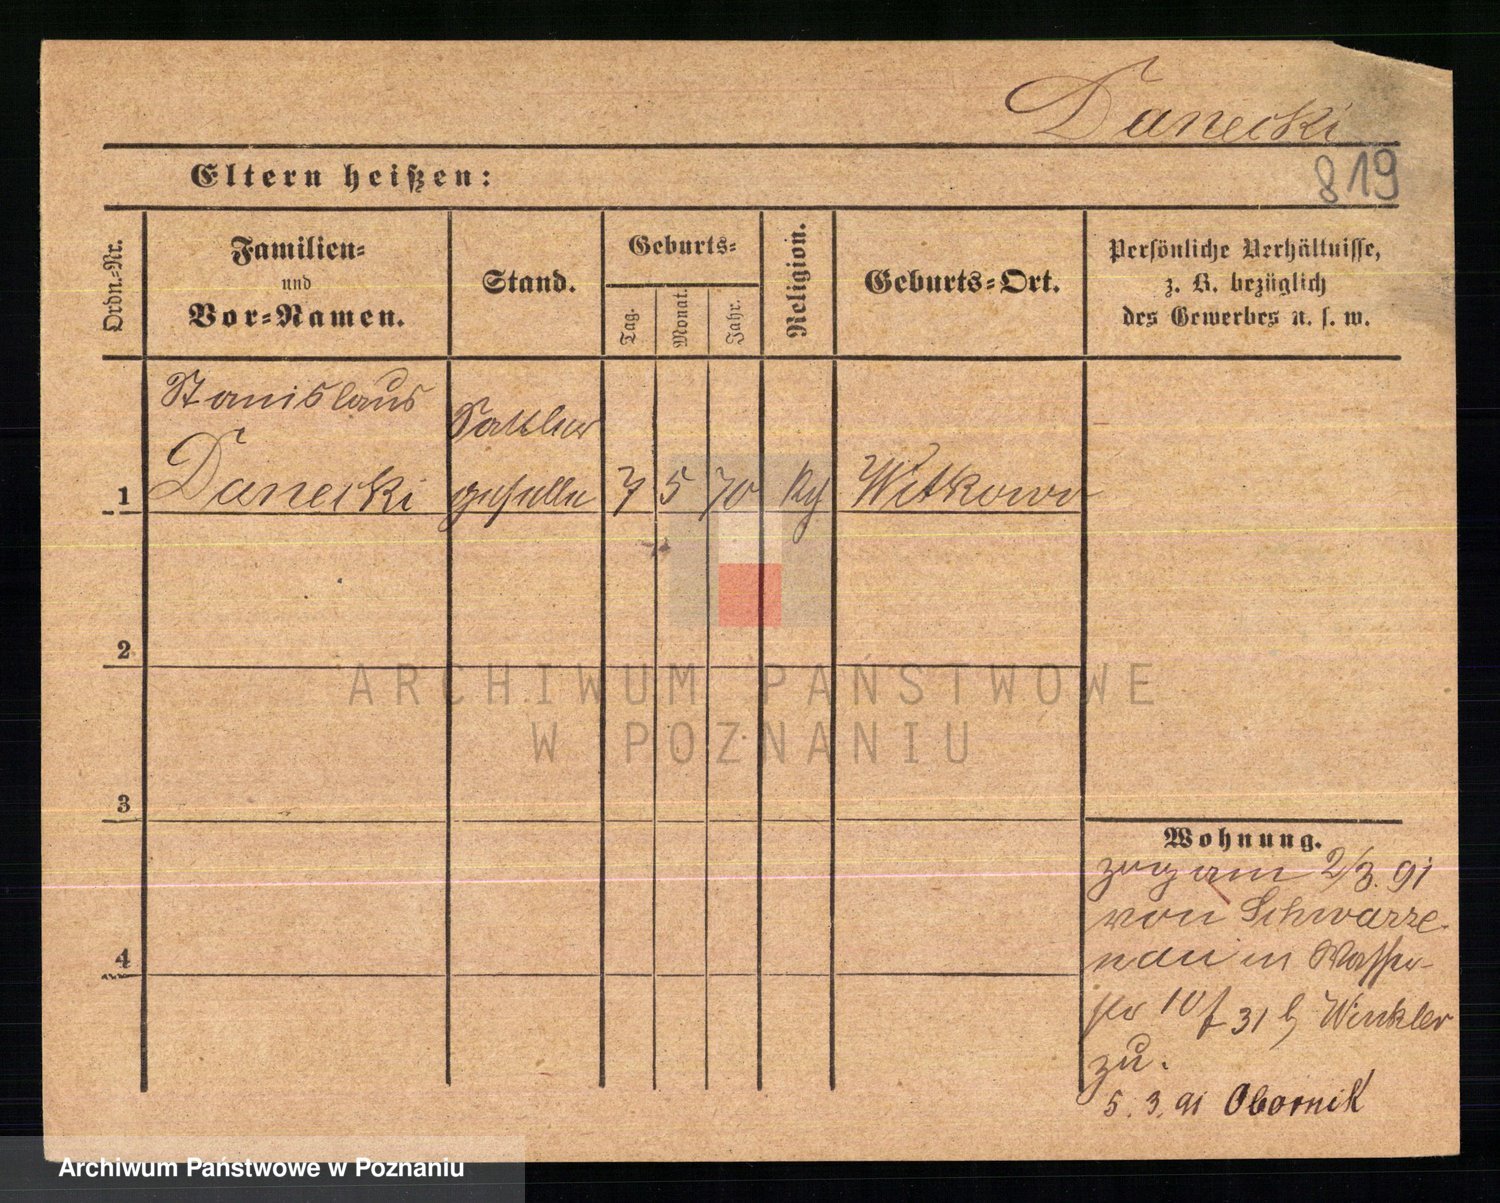 Danecki
819
Eltern heißen:
Ordn.-Nr.
Familien-
und
Vor-Namen.
Stand.
Geburts-
Tag.
Monat.
Jahr.
Religion.
Geburts-Ort.
Persönliche Verhältnisse,
z. B. bezüglich
des Gewerbes u. s. w.
Stanislaus
Danecki
Sattler
geselle
1
7
5
70
Witkowo
2
3
4
ARCHIWUM PAŃSTWOWE
W POZNANIU
Wohnung.
zog am 2/3. 91
von Schwarze-
nau in Wasser-
str 10 31 b Winkler
zu.
5. 3. 91 Obornik
Archiwum Państwowe w Poznaniu